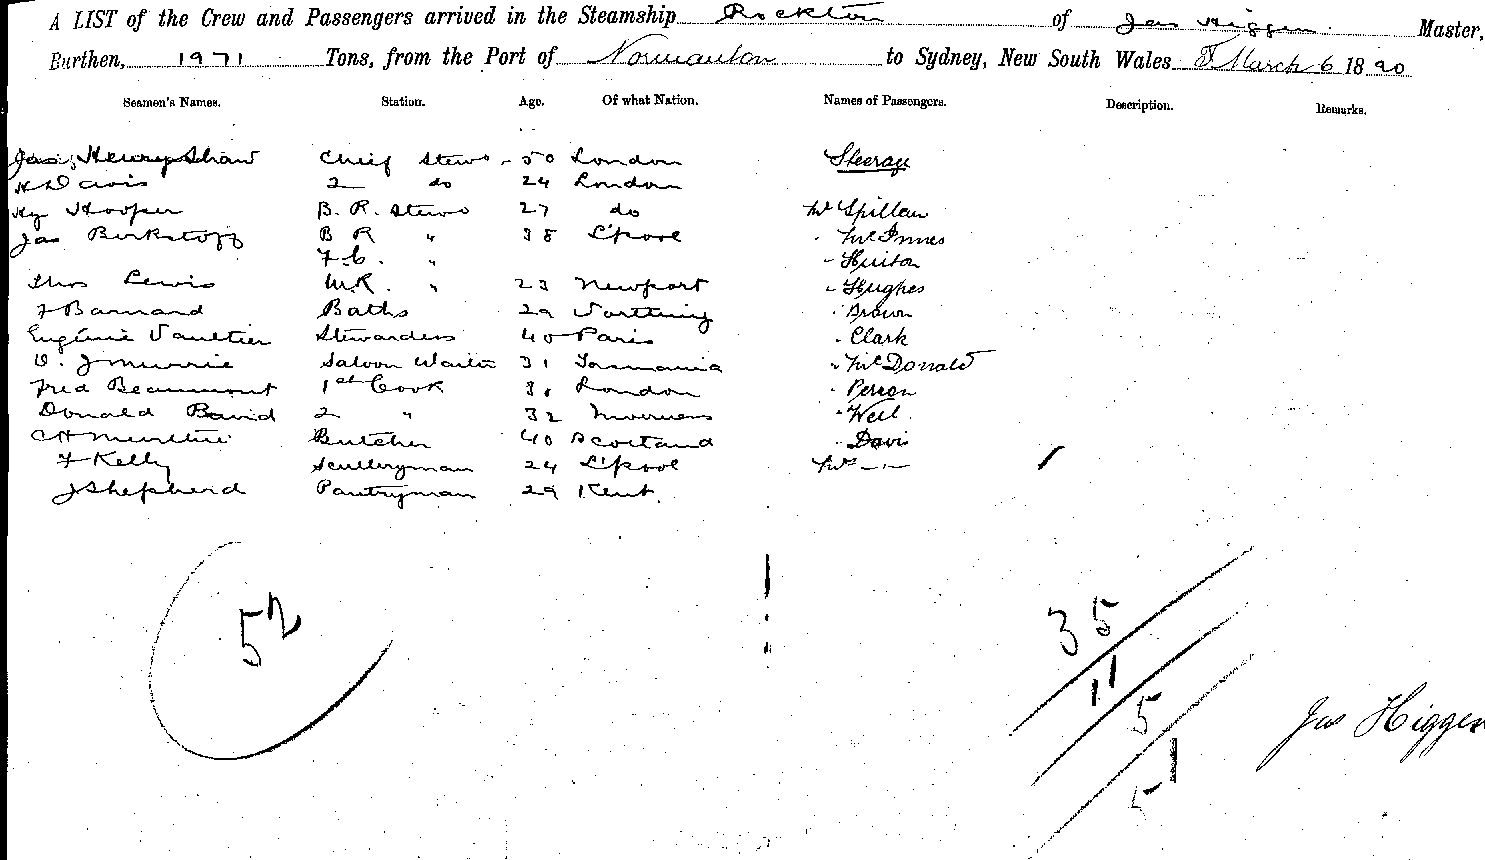 A LIST of the Crew and Passengers arrived in the Steamship Rockton of Jas Higgen Master,
Burthen, 1971 Tons, from the Port of Normanton to Sydney, New South Wales March 6 1890
Seamen's Names. Station. Age. Of what Nation. Names of Passengers. Description. Remarks.
Jas. Henry Shaw Chief Stewd 50 London Steerage
H Davis 2 do 24 London
Hy Hooper B. R. Stewd 27 do Mr Spillan
Jas B R " 38 L'pool " McInnes
F. C. " " Huison
Thos Lewis M.R. " 23 Newport " Hughes
F Barnard Baths 29 Worthing " Brown
Eugénie Vaultier Stewardess 40 Paris " Clark
D. J Murrie Saloon Waiter 31 Tasmania " McDonald
Fred Beaumont 1st Cook London
Donald Baird 2 " 32 Inverness "
C H Butcher 40 Scotland " Davis
F Kelly Sculleryman 24 L'pool Mrs --
J Shepherd Pantryman 29 Kent.
52
35
11
5
51
Jas Higgen